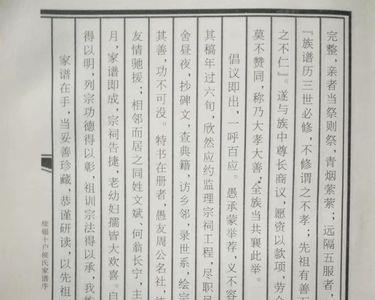 完整，亲者当祭则祭，青烟萦萦；远隔五服者，
『族谱历三世必修，不修谓之不孝；先祖有善而
之不仁』。遂与族中尊长商议，愿资以款项，劳
莫不赞同，称乃大孝大善，全族当共襄此举。
倡议即出，一呼百应。愚承蒙举荐，义不容
其稿年过六旬，欣然应约监理宗祠工程，尽职尽
舍昼夜，抄碑文，查典籍，访乡邻，录世系，绘宗
其善，功不可没。特书在册者，愚友周公名社，
友情驰援；相邻而居之同姓文斌、何翁长宁，主
月，家谱即成，宗祠告捷，老幼妇孺皆大欢喜。自
得以明，列宗功德得以彰，祖训宗法得以承，我
家谱在手，当妥善珍藏，恭谨研读，以先祖
侯氏家谱序